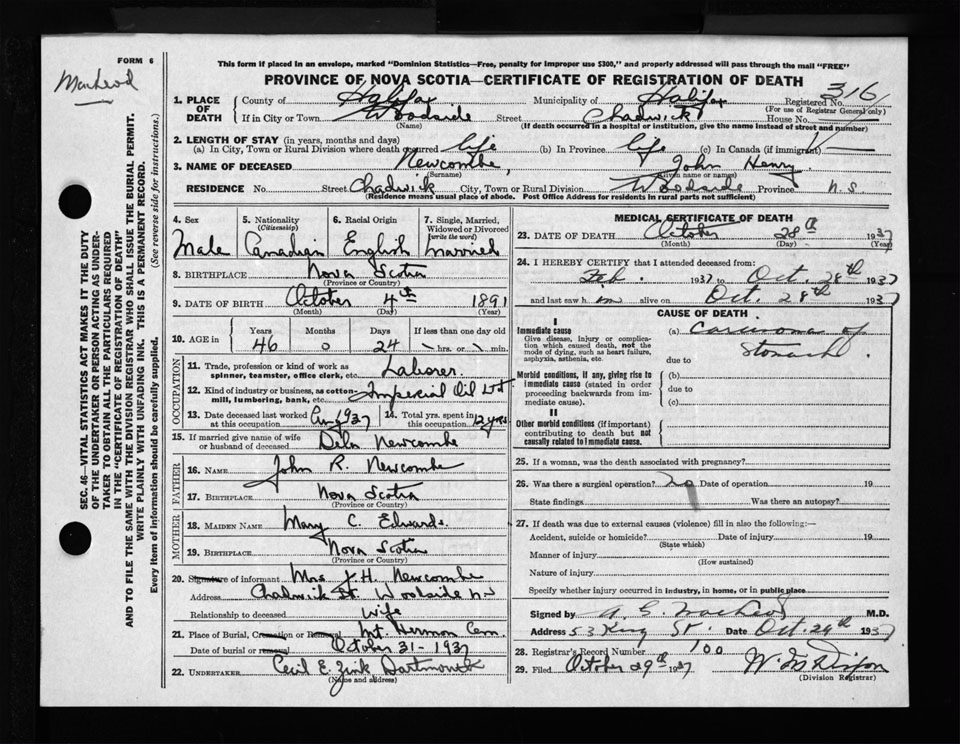 FORM 6
MacLeod
This form if placed in an envelope, marked "Dominion Statistics—Free, penalty for improper use $300," and properly addressed will pass through the mail "FREE"
PROVINCE OF NOVA SCOTIA—CERTIFICATE OF REGISTRATION OF DEATH
316
1. PLACE OF DEATH County of Halifax Municipality of Halifax Registered No.
(For use of Registrar General only)
If in City or Town Woodside Street Chadwick House No.
(Name) (If death occurred in a hospital or institution, give the name instead of street and number)
2. LENGTH OF STAY (in years, months and days)
(a) In City, Town or Rural Division where death occurred life (b) In Province life (c) In Canada (if immigrant)
3. NAME OF DECEASED Newcombe, John Henry
(Surname) (Given name or names)
RESIDENCE No. Street Chadwick City, Town or Rural Division Woodside Province N.S
(Residence means usual place of abode. Post Office Address for residents in rural parts not sufficient)
SEC. 46—VITAL STATISTICS ACT MAKES IT THE DUTY
OF THE UNDERTAKER OR PERSON ACTING AS UNDER-
TAKER TO OBTAIN ALL THE PARTICULARS REQUIRED
IN THE "CERTIFICATE OF REGISTRATION OF DEATH"
AND TO FILE THE SAME WITH THE DIVISION REGISTRAR WHO SHALL ISSUE THE BURIAL PERMIT.
WRITE PLAINLY WITH UNFADING INK. THIS IS A PERMANENT RECORD.
Every item of information should be carefully supplied. (See reverse side for instructions.)
4. Sex 5. Nationality (Citizenship) 6. Racial Origin 7. Single, Married, Widowed or Divorced (write the word)
Male Canadian English Married
8. BIRTHPLACE Nova Scotia
(Province or Country)
9. DATE OF BIRTH October 4th 1891
(Month) (Day) (Year)
10. AGE in Years Months Days If less than one day old
46 0 24 hrs. or min.
OCCUPATION
11. Trade, profession or kind of work as spinner, teamster, office clerk, etc. Laborer.
12. Kind of industry or business, as cotton-mill, lumbering, bank, etc. Imperial Oil Ltd
13. Date deceased last worked at this occupation Aug 1937 14. Total yrs. spent in this occupation 12 yrs
15. If married give name of wife or husband of deceased Newcombe
FATHER
16. NAME John R. Newcombe
17. BIRTHPLACE Nova Scotia
(Province or Country)
MOTHER
18. MAIDEN NAME Mary C. Edwards.
19. BIRTHPLACE Nova Scotia
(Province or Country)
20. Signature of informant Mrs J. H. Newcombe
Address Chadwick St. Woodside NS
Relationship to deceased wife
21. Place of Burial, Cremation or Removal Mt Hermon Cem.
Date of burial or removal October 31-1937
22. UNDERTAKER Cecil E. Zink Dartmouth
(Name and address)
MEDICAL CERTIFICATE OF DEATH
23. DATE OF DEATH October 28th 1937
(Month) (Day) (Year)
24. I HEREBY CERTIFY that I attended deceased from:
Feb. 1937 to Oct. 28th 1937
and last saw him alive on Oct. 28th 1937
CAUSE OF DEATH
I
Immediate cause (a) Carcinoma of
Give disease, injury or complication which caused death, not the mode of dying, such as heart failure, asphyxia, asthenia, etc.
due to Stomach.
Morbid conditions, if any, giving rise to immediate cause (stated in order proceeding backwards from immediate cause).
(b)
due to
(c)
II
Other morbid conditions (if important) contributing to death but not causally related to immediate cause.
25. If a woman, was the death associated with pregnancy?
26. Was there a surgical operation? no Date of operation 19
State findings Was there an autopsy?
27. If death was due to external causes (violence) fill in also the following:—
Accident, suicide or homicide? Date of injury 19
(State which)
Manner of injury
(How sustained)
Nature of injury
Specify whether injury occurred in industry, in home, or in public place
Signed by A. G. MacLeod M.D.
Address 53 King St. Date Oct. 29th 1937
28. Registrar's Record Number 100
29. Filed October 29th 1937
(Division Registrar)